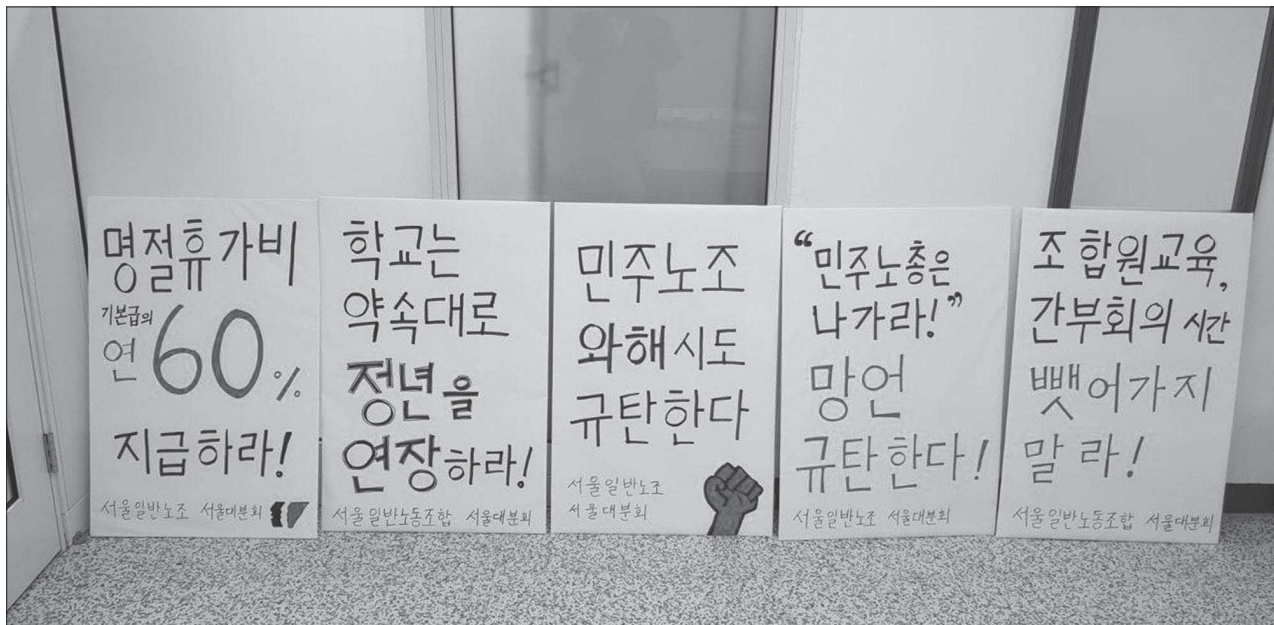 명절휴가비
기본급의
연 60%
지급하라!
서울일반노조 서울대분회
학교는
약속대로
정년을
연장하라!
서울일반노동조합 서울대분회
민주노조
와해시도
규탄한다
서울일반노조
서울대분회
“민주노총은
나가라!”
망언
규탄한다!
서울일반노조 서울대분회
조합원교육,
간부회의 시간
뺏어가지
말라!
서울일반노동조합 서울대분회